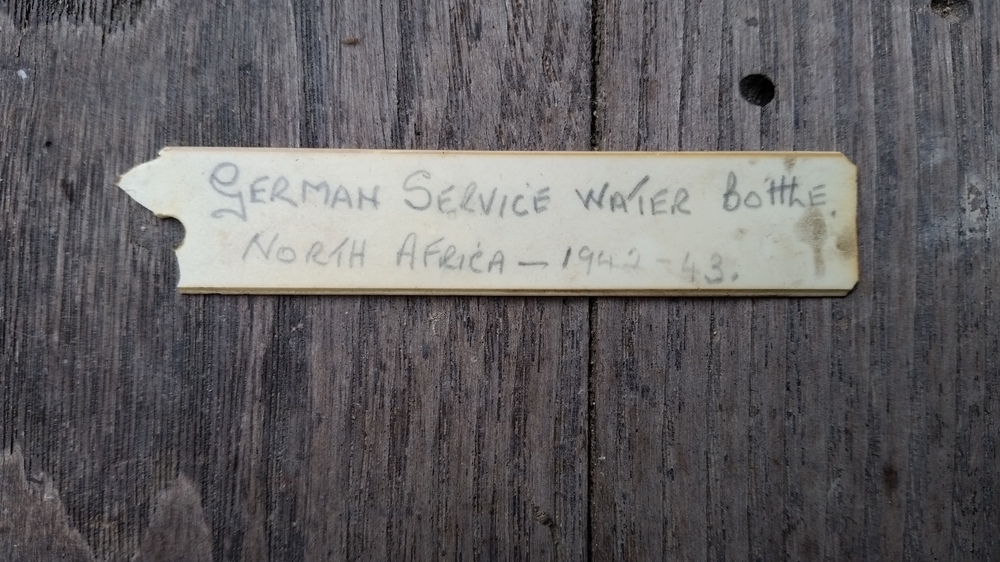 GERMAN SERVICE WATER BOTTLE.
NORTH AFRICA — 1942-43.